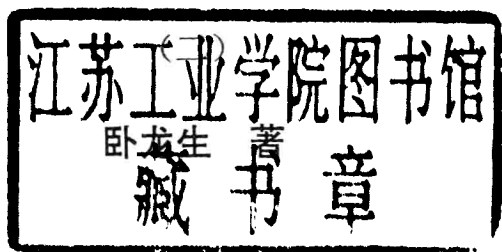 (二)
江苏工业学院图书馆
卧龙生 著
藏书章